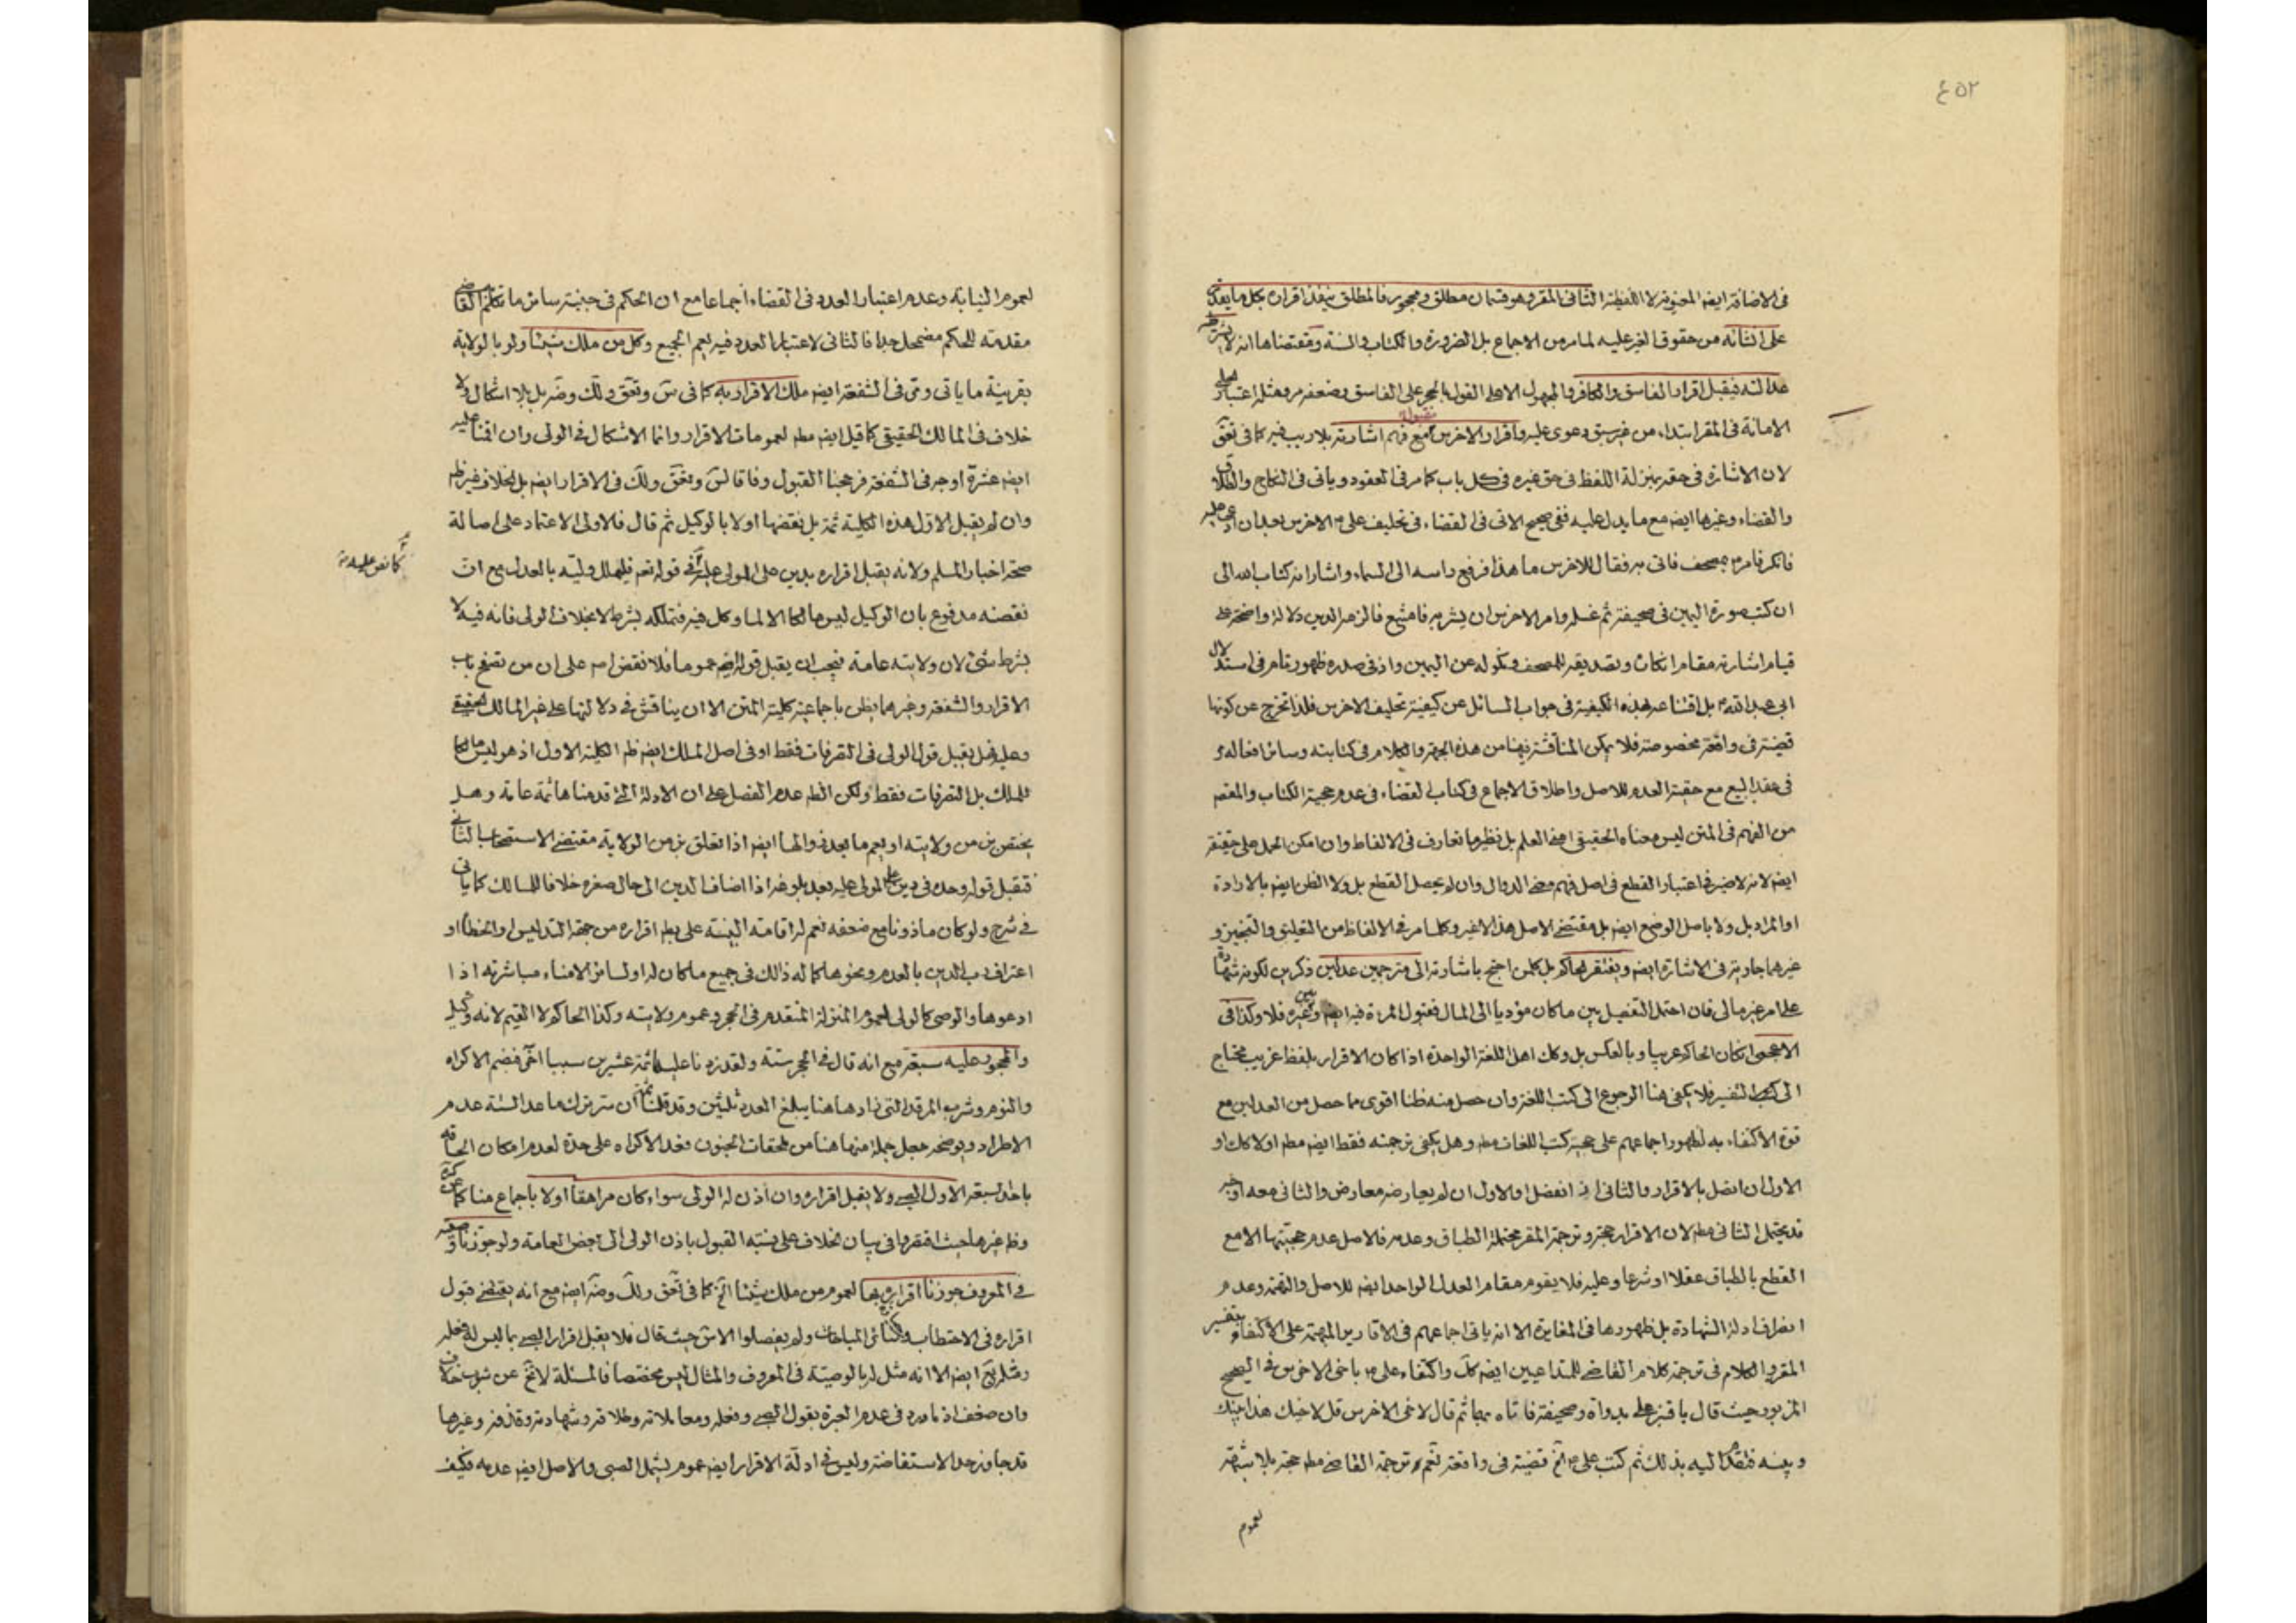 ٤٥٢
في الاضافة ايضا المعنوية لا اللفظية الثاني المقر وهو قسمان مطلق ومحجور فالمطلق ينفذ اقراره بكل ما يقدر
على انشائه من حقوق الغير عليه لما مر من الاجماع بل الضرورة والكتاب والسنة ومقتضاها انه لا يشترط
عدالته فيقبل اقرار الفاسق والكافر والمجهول الا على القول بالحجر على الفاسق وضعفه مر ومثله اعتبار
الامانة في المقر ابتداء من غير سبق دعوى عليه واقرار الاخرس مقبولة مع فهم اشارته بلا ريب فيه كما في تعق
لان الاشارة في حقه بمنزلة اللفظ في حق غيره في كل باب كما مر في العقود وياتي في النكاح والطلاق
والقضاء وغيرها ايضا مع ما يدل عليه ففي صحيح الاتي في القضاء في تحليف على م الاخرس بعد ان ادعى عليه
فانكر فامر م بمصحف فاتى به فقال للاخرس ما هذا فرفع راسه الى السماء واشار انه كتاب الله الى
ان كتب صورة اليمين في صحيفة ثم غسله وامر الاخرس ان يشربه فامتنع فالزمه الدين دلالة واضحة على
قيام اشارته مقام انكاره وتصديقه للمصحف ونكوله عن اليمين واذ في صدره ظهور تام في استدلال
ابي عبد الله م بل افتنا عه بهذه الكيفية في جواب السائل عن كيفية تحليف الاخرس فلذا تخرج عن كونها
قضية في واقعة مخصوصة فلا يمكن المناقشة فيها من هذه الجهة والكلام في كتابته وسائر افعاله مر
في عقد البيع مع حقية العدم للاصل واطلاق الاجماع في كتاب القضاء في عدم حجية الكتاب والمفهم
من الفهم في المتن ليس معناه الحقيقي اعني العلم بل نظير ما تعارف في الالفاظ وان امكن الحمل على حقيقته
ايضا لانه لا ضير في اعتبار القطع في اصل فهم وضع الدوال وان لم يحصل القطع بل ولا الظن ايضا بالارادة
او المراد بل ولا باصل الوضع ايضا بل مقتضى الاصل هذا الاخير وكلما مر في الالفاظ من التعليق والتنجيز و
غيرهما جارية في الاشارة ايضا ويفتقر الحاكم بل كل من احتج باشارته الى مترجمين عدلين ذكرين لكونه شهادة
على امر غير مالي فان احتمل التفصيل بين ما كان مؤديا الى المال فقبول المرءة فيه ايضا وبين غيره فلا وكذا في
الاعجمي ان كان الحاكم عربيا وبالعكس بل وكك اهل اللغة الواحدة اذا كان الاقرار بلفظ غريب محتاج
الى كتب التفسير فلا يكفي هنا الرجوع الى كتب اللغة وان حصل منه ظنا اقوى مما حصل من العدلين مع
قوة الاكتفاء به لظهور اجماعهم على حجية كتب اللغات مط وهل يكفي ترجمته فقط ايضا مط اولا كك او
الاول ان اتصل بالاقرار والثاني ان انفصل او الاول ان لم يعارضه معارض والثاني معه اوجه
قد يحتمل الثاني مط لان الاقرار حجة وترجمة المقر محتملة الطباق وعدمه فلاصل عدم حجيتها الا مع
القطع بالطباق عقلا او شرعا وعليه فلا يقوم مقام العدل الواحد ايضا للاصل والتهمة وعدم
انصراف ادلة الشهادة بل ظهورها في المغايرة الا انه ياتي اجماعهم في الاقارير المبهمة على الاكتفاء بتفسير
المقر والكلام في ترجمة كلام القاضي للمتداعيين ايضا كك واكتفاء على م باخى الاخرس في الصحيح
المزبور حيث قال يا قنبر علي بدواة وصحيفة فاتاه بهما ثم قال لاخى الاخرس قل لاخيك هذا بينك
وبينه فتقدم اليه بذلك ثم كتب على م الخ قضية في واقعة نعم ترجمة القاضي مط حجة بلا شبهة
لعموم
لعموم النيابة وعدم اعتبار العدد في القضاء اجماعا مع ان الحكم في جنبة سائر ما تكلم القاضي
مقدمة للحكم مضمحل جدا فالثاني لاعتبار العدد فيه نعم الجميع وكل من ملك شيئا ولو بالولاية
بقرينة ما ياتي ومر في الشفعة ايضا ملك الاقرار به كما في س وتعق ولك وضر بل بلا اشكال ولا
خلاف في المالك الحقيقي كما قيل ايضا مط لعمومات الاقرار وانما الاشكال في الولي وان اقمنا عليه
ايضا عشرة اوجه في الشفعة فرجحنا القبول وفاقا لس وتعق ولك في الاقرار ايضا بل بخلاف غير ظ
وان لم يقبل الاول هذه الكلية ثمة بل نقضها اولا بالوكيل ثم قال فالاولى الاعتماد على اصالة
صحة اخبار المسلم ولانه يقبل اقراره بدين على المولى عليه في قوله تعم فليملل وليه بالعدل مع ان
كما نص عليه منه
نقضه مدفوع بان الوكيل ليس مالكا الا لما وكل فيه فتملكه بشرط لا بخلاف الولي فانه فيه لا
بشرط شئ لان ولايته عامة فيجب ان يقبل قوله ايضا عموما فلا نقض م على ان من تصفح باب
الاقرار والشفعة وغيرهما يظن باجماعية كلية المتن الا ان يناقش في دلالتها على غير المالك الحقيقي
وعليه فهل يقبل قول الولي في التصرفات فقط او في اصل الملك ايضا ظ الكلية الاول اذ هو ليس مالكا
للملك بل التصرفات فقط ولكن الظ عدم الفصل على ان الادلة التي قدمناها ثمة عامة وهل
يختص بزمن ولايته او يعم ما بعد زوالها ايضا اذا تعلق بزمن الولاية مقتضى الاستصحاب الثاني
فتقبل قوله وحده في دين على المولى عليه بعد بلوغه اذا اضاف الدين الى حال صغره خلافا للمسالك كما ياتي
في شرح ولو كان ماذونا مع ضعفه نعم له اقامة البينة على بط اقراره من جهة التدليس او الخطا او
اعتراف رب الدين بالعدم ونحوها كما له ذالك في جميع ما كان له او لسائر الامناء مباشرته اذا
ادعوها والوصى كالولي لعموم المنزلة المتقدم في الحجر وعموم ولايته وكذا الحاكم لا القيم لانه وكيل
والمحجور عليه سبقه مع انه قال في الحجر ستة ولقد زدنا عليها ثمة عشرين سببا اخر فضم الاكراه
والنوم وشرب المرقد التي زادها هنا يبلغ العدد ثلثين وقد قلنا ثمة ان سر ترك ما عدا الستة عدم
الاطراد ويوضحه جعل جملة منها هنا من ملحقات الجنون فعد الاكراه على حدة لعدم امكان الحاقه
باحد لسبقه الاول الصبي ولا يقبل اقراره وان اذن له الولي سواء كان مراهقا اولا باجماع منا كما عن كره
وظ غيرها حيث افتقروا في بيان الخلاف على نسبة القبول باذن الولي الى بعض العامة ولو جوزنا وصيته
في المعروف جوزنا اقراره بها لعموم من ملك شيئا الخ كما في تعق ولك وضر ايضا مع انه يقتضي قبول
اقراره في الاحتطاب وكذا سائر المباحات ولم يفصلوا الا س حيث قال فلا يقبل اقرار الصبي بما ليس له فعله
ومثله تع ايضا الا انه مثل له بالوصية في المعروف والمثال ليس مختصا فالمسئلة لا تخ عن شوب خلاف
وان ضعف اذ ما ورد في عدم العبرة بقول الصبي وفعله ومعاملاته وطلاقه وشهادته وقذفه وغيرها
قد جاوز حد الاستفاضة وليس في ادلة الاقرار ايضا عموم ليشمل الصبي والاصل ايضا عدمه فكيف